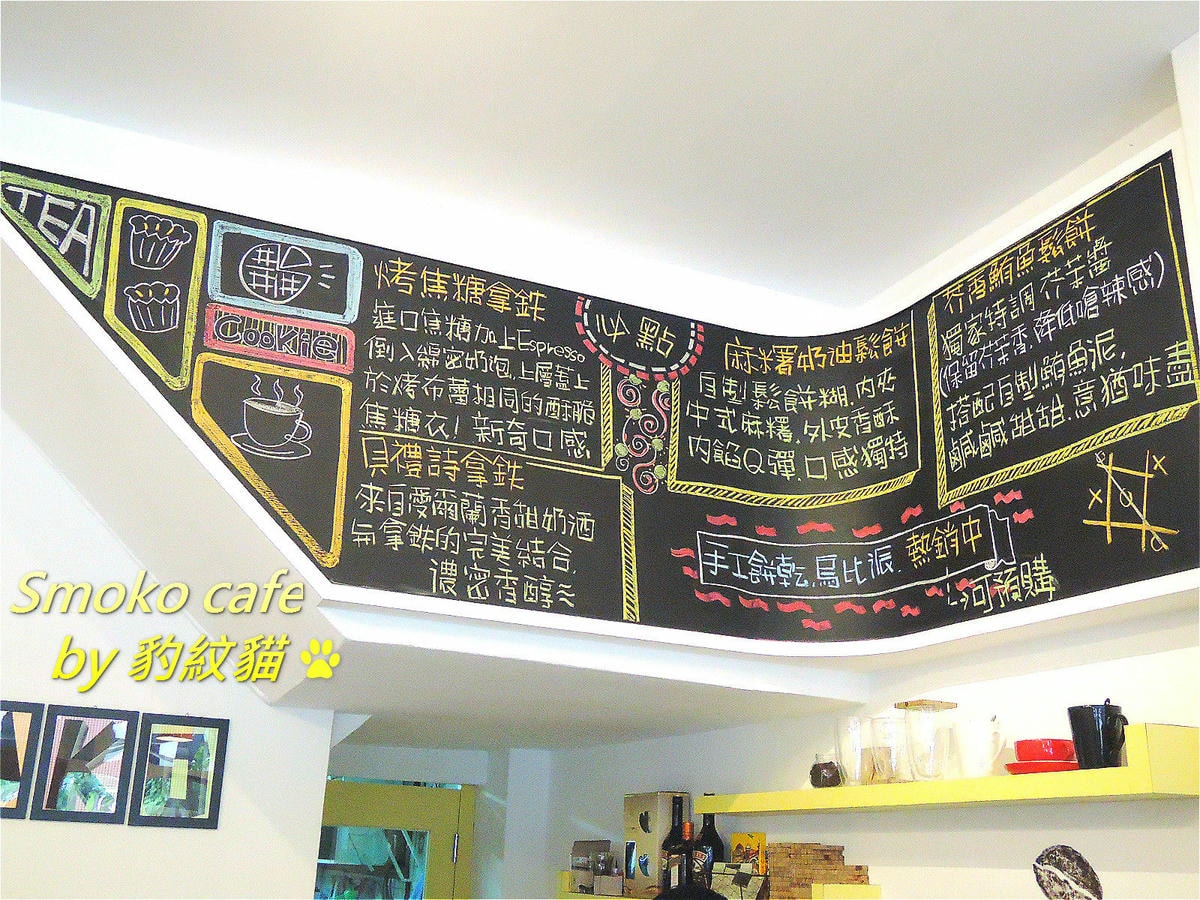 TEA
Cookie
烤焦糖拿鉄
進口焦糖加上Espresso
倒入綿密奶泡,上層蓋上
於烤布蕾相同的酥脆
焦糖衣!新奇口感
貝禮詩拿鉄
來自愛爾蘭香甜奶酒
與拿鉄的完美結合,
濃密香醇
必點
麻糬奶油鬆餅
自製鬆餅糊,內夾
中式麻糬,外皮香酥
內餡Q彈,口感獨特
芥香鮪魚鬆餅
獨家特調芥茉醬
(保留芥茉香,降低嗆辣感)
搭配自製鮪魚泥,
鹹鹹甜甜,意猶味盡
手工餅乾,烏比派,熱銷中
可預購
Smoko cafe
by 豹紋貓